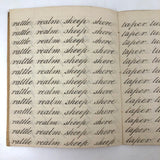 rattle realm sheep shore
rattle realm sheep shore
rattle realm sheep shore
rattle realm sheep shore
rattle realm sheep shore
rattle realm sheep shore
rattle realm sheep shore
rattle realm sheep shore
rattle realm sheep shore
rattle realm sheep shore
rattle realm sheep shore
rattle realm sheep shore
taper
taper
taper
taper
taper
taper
taper
taper
taper
taper
taper
taper